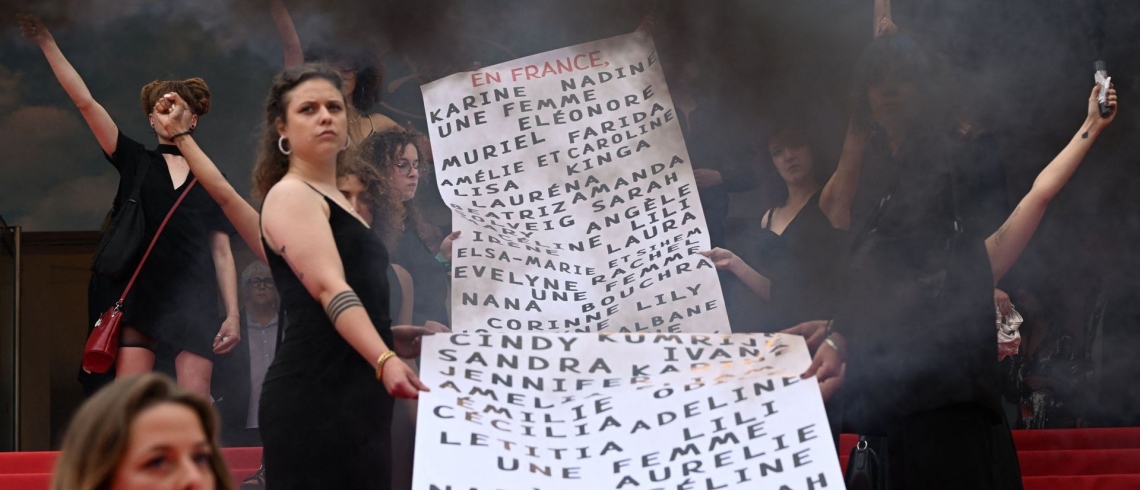 EN FRANCE,
KARINE NADINE
UNE FEMME
ELÉONORE
MURIEL FARIDA
AMÉLIE ET CAROLINE
LISA KINGA
LAURÉNA AMANDA
BEATRIZ SARAH
SOLVEIG ANGÈLE
CÉLINE LILI
IRÈNE LAURA
ELSA-MARIE ET SIHEM
EVELYNE RACHEL
UNE FEMME
NANA BOUCHRA
CORINNE LILY
ALBANE
CINDY
SANDRA IVANA
JENNIFER KARINE
AMELIE
ÉMILIE
CÉCILIA ADELINE
LETITIA LILI
UNE FEMME
AURELIE
CÉLINE